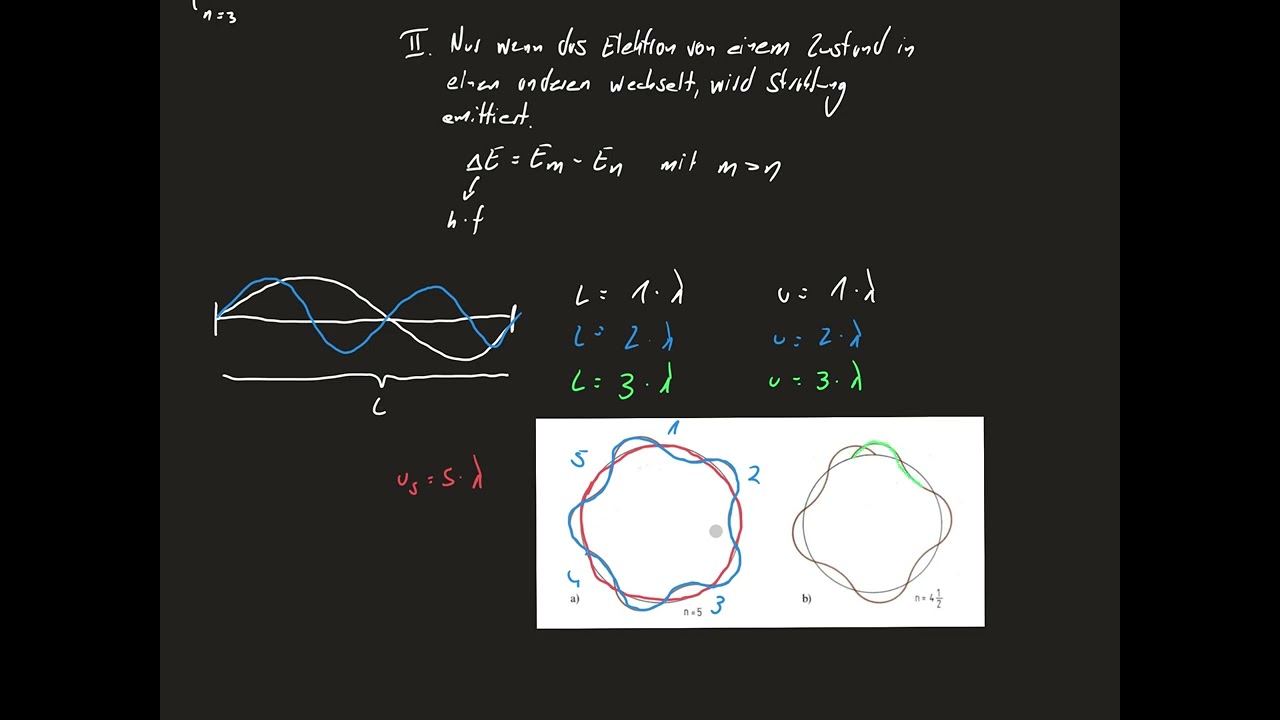 n=3
II. Nur wenn das Elektron von einem Zustand in
einen anderen wechselt, wird Strahlung
emittiert.
ΔE = Em - En mit m > n
h · f
L = 1 · λ u = 1 · λ
L = 2 · λ u = 2 · λ
L = 3 · λ u = 3 · λ
L
u5 = 5 · λ
1
5
2
4
3
a) n = 5
b) n = 4 1/2